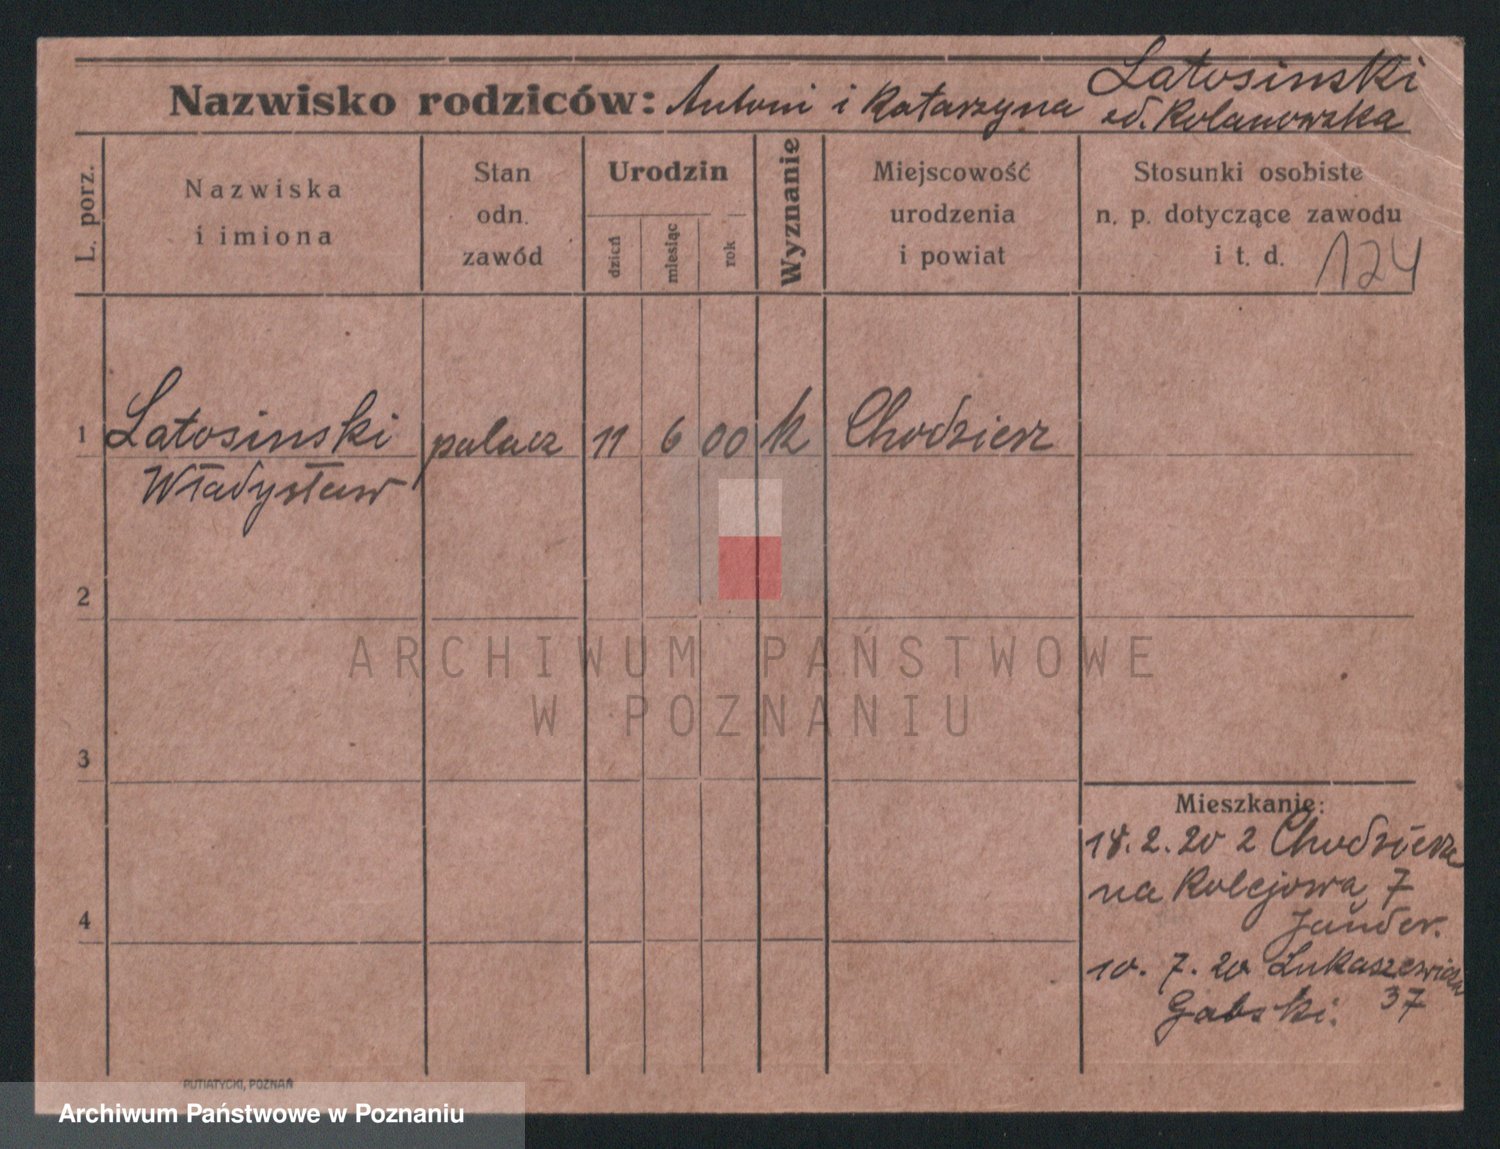 Nazwisko rodziców: Antoni i Katarzyna Latosinski
Kolanowska
L. porz.
Nazwiska
i imiona
Stan
odn.
zawód
Urodzin
dzień
miesiąc
rok
Wyznanie
Miejscowość
urodzenia
i powiat
Stosunki osobiste
n. p. dotyczące zawodu
i t. d.
124
1 Latosinski palacz 11 6 00 k Chodziesz
Władysław
2
ARCHIWUM PAŃSTWOWE
W POZNANIU
3
Mieszkanie:
18. 2. 20 z Chodziesz
na Kolejową 7
Jander.
4
10. 7. 20 Lukaszewicza
37
Gabski.
PUTIATYCKI, POZNAŃ
Archiwum Państwowe w Poznaniu